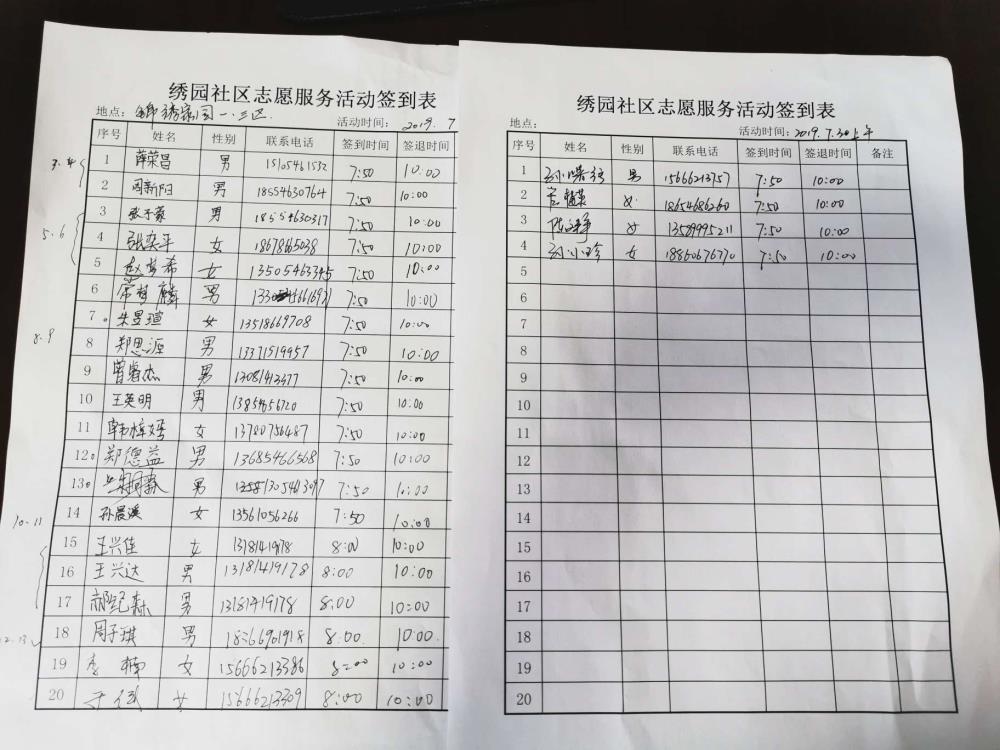 绣园社区志愿服务活动签到表
地点：锦绣家园一.三区 活动时间：2019.7
序号 姓名 性别 联系电话 签到时间 签退时间
1 薛荣昌 男 15105461532 7:50 10:00
2 周新阳 男 18554630764 7:50 10:00
3 张子豪 男 18554630317 7:50 10:00
4 张奕平 女 18678665038 7:50 10:00
5 赵梦希 女 13505463345 7:50 10:00
6 常梦麟 男 7:50 10:00
7 朱昱瑄 女 13518669708 7:50 10:00
8 郑思源 男 13371519957 7:50 10:00
9 曾睿杰 男 7:50 10:00
10 王英明 男 7:50 10:00
11 韩梓嫣 女 13780756487 7:50 10:00
12 郑德益 男 13685466568 7:50 10:00
13 男 7:50 10:00
14 孙晨溪 女 13561056266 7:50 10:00
15 王兴佳 女 8:00 10:00
16 王兴达 男 13181419178 8:00 10:00
17 郝纪森 男 13181419178 8:00 10:00
18 周子琪 男 18266901918 8:00 10:00
19 李楠 女 15666213386 8:00 10:00
20 女 15666213309 8:00 10:00
3.4
5.6
8.9
10-11
12.13
绣园社区志愿服务活动签到表
地点： 活动时间：2019.7.30上午
序号 姓名 性别 联系电话 签到时间 签退时间 备注
1 男 15666213757 7:50 10:00
2 女 18654686260 7:50 10:00
3 女 13589995211 7:50 10:00
4 孙小珍 女 18860676770 7:50 10:00
5
6
7
8
9
10
11
12
13
14
15
16
17
18
19
20